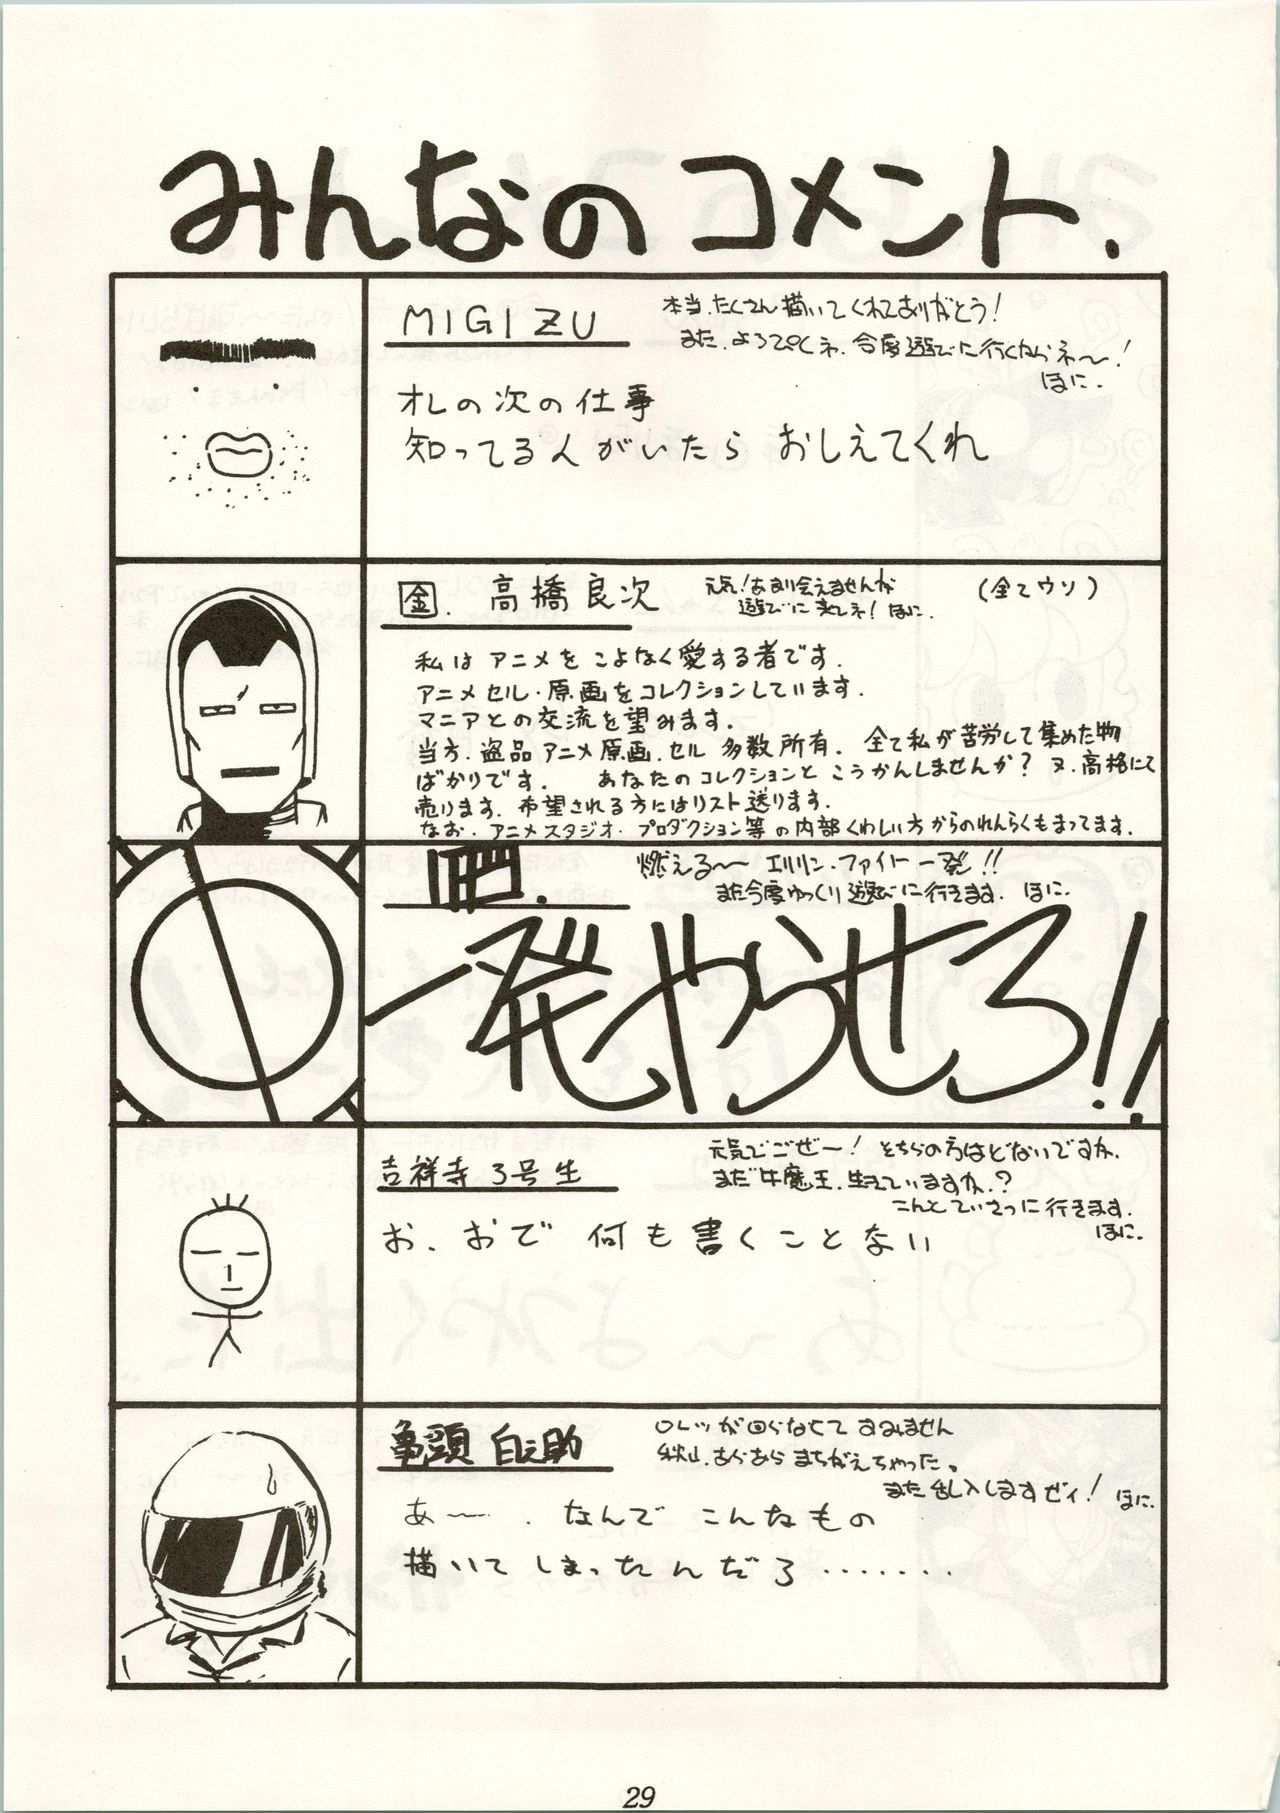 みんなのコメント.
MIGIZU
本当、たくさん描いてくれてありがとう!
また、よろぴくネ、今度遊びに行くからネ〜!
ほに.
オレの次の仕事
知ってる人がいたら おしえてくれ
金. 高橋良次
元気!あまり会えませんが
遊びに来てネ! ほに.
(全てウソ)
私は アニメを こよなく愛する者です.
アニメセル・原画をコレクションしています.
マニアとの交流を望みます.
当方、盗品 アニメ原画、セル 多数所有. 全て私が苦労して集めた物
ばかりです. あなたのコレクションと こうかんしませんか? 又、高格にて
売ります. 希望される方にはリスト送ります.
なお、アニメスタジオ・プロダクション等の内部くわしい方からのれんらくもまってます.
燃える〜 エリリン・ファイト一発!!
また今度ゆっくり遊びに行きます. ほに.
一発やらせろ!!
吉祥寺3号生
元気でごぜー! そちらの方はどないですか.
まだ牛魔王、生きていますか.?
こんどていさつに行きます.
ほに.
お、おで 何も書くことない
亀頭 白之助
ロレツが回らなくて すみません
秋山、あらあら まちがえちゃった。
また乱入しますぜィ! ほに.
あ〜. なんで こんなもの
描いてしまったんだろ.......
29